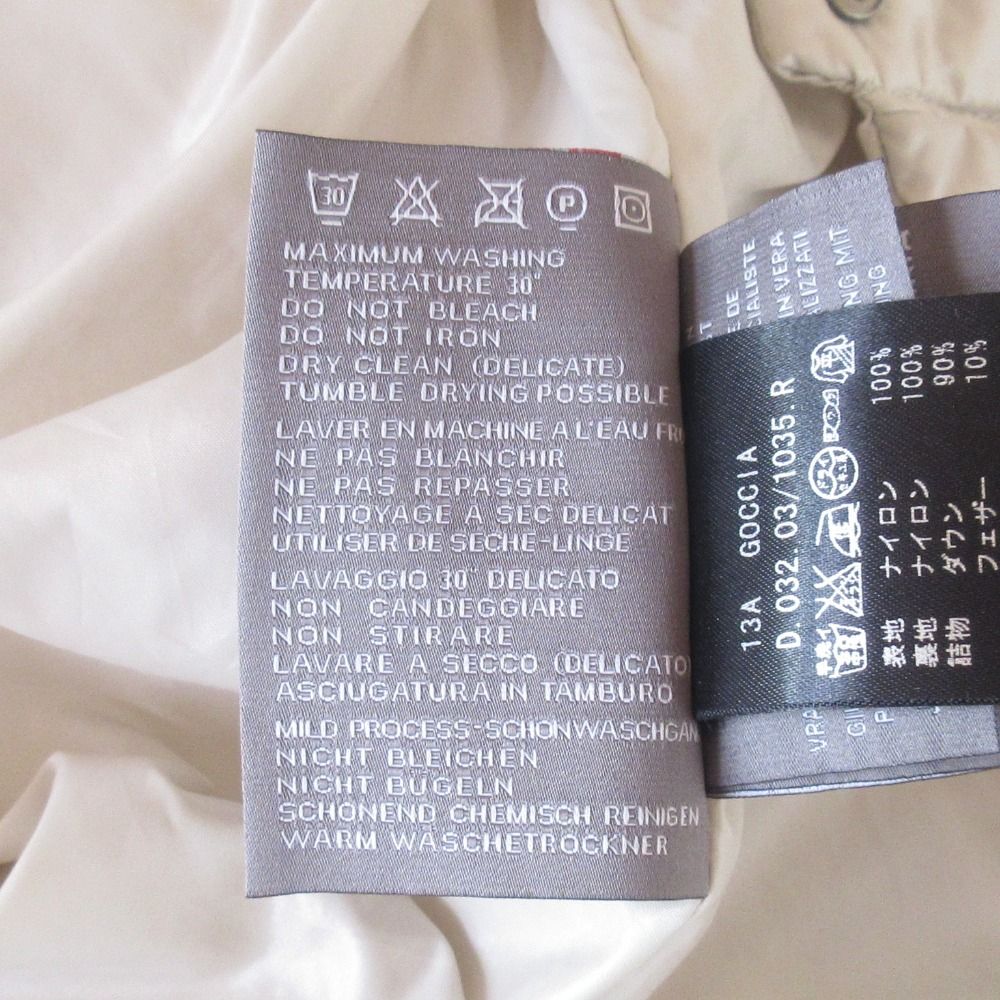 30
P
MAXIMUM WASHING
TEMPERATURE 30°
DO NOT BLEACH
DO NOT IRON
DRY CLEAN (DELICATE)
TUMBLE DRYING POSSIBLE
LAVER EN MACHINE A L'EAU
NE PAS BLANCHIR
NE PAS REPASSER
NETTOYAGE A SEC DELICAT
UTILISER DE SECHE-LINGE
LAVAGGIO 30° DELICATO
NON CANDEGGIARE
NON STIRARE
LAVARE A SECCO (DELICATO)
ASCIUGATURA IN TAMBURO
MILD PROCESS-SCHONWASCHGAN
NICHT BLEICHEN
NICHT BÜGELN
SCHONEND CHEMISCH REINIGEN
WARM WASCHETROCKNER
DE
IALISTE
IN VERA
LIZZATI
NG MIT
NG
13A GOCCIA
D.032.03/1035.R
ドライ
表地 ナイロン 100%
裏地 ナイロン 100%
詰物 ダウン 90%
フェザー 10%
VRA